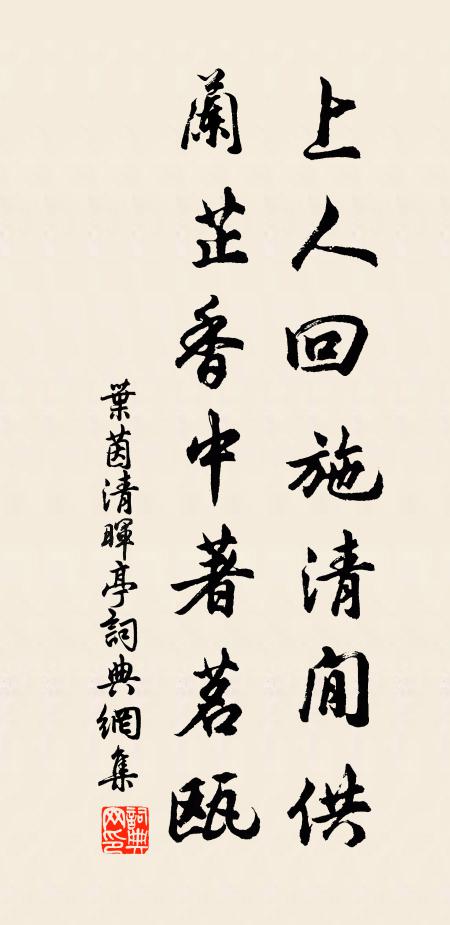 上人回施清閒供
蘭芷香中著茗甌
葉茵清暉亭詞典網集
詞典网印